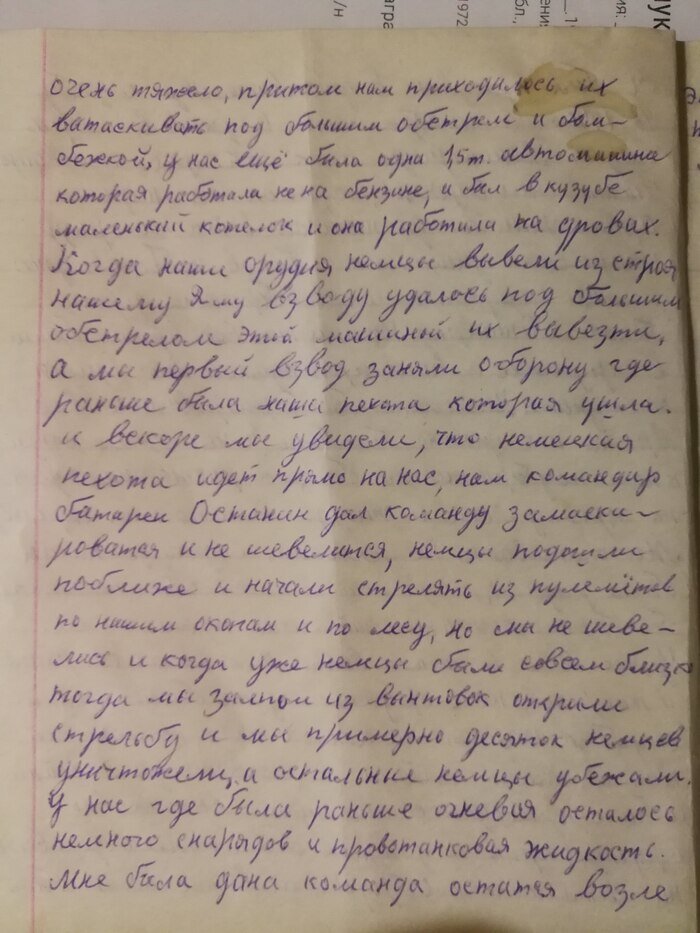 /н
агра
1972
обл.,
ения
ия:
ук
очень тяжело, притом нам приходалось их
ватаскивать под большим обстрелм и бом-
бежкой, у нас ещё была одна 1,5т. автомашина
которая работала не на бензине, и был в кузубе
маленький котелок и она работила на дровах.
Когда наши орудия немцы вывели из строя
нашему 2му взводу удалось под большим
обстрелом этой машиной их вывезти,
а мы первый взвод заняли оборону где
раньше была наша пехота которая ушла.
и вскоре мы увидели, что немецкая
пехота идет прямо на нас, нам командир
батареи Останин дал команду замаски-
роватся и не шевелится, немцы подошли
поближе и начали стрелять из пулемётов
по нашим окопам и по лесу, но мы не шеве-
лись и когда уже немцы были совсем близко
тогда мы залпом из вынтовок открыли
стрельбу и мы примерно десяток немцев
уничтожели, а остальные немцы убежали.
У нас где была раньше огневая осталось
немного снарядов и провотанковая жидкость.
Мне была дана команда остатся возле